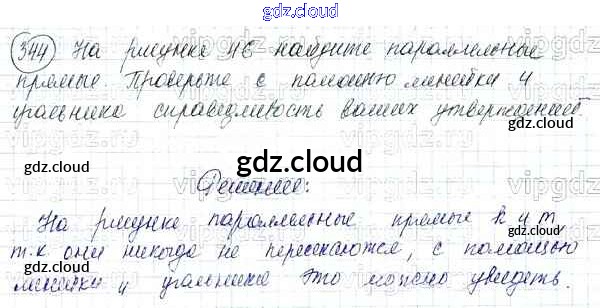 gdz.cloud
344 На рисунке 46 найдите параллельные
прямые. Проверьте с помощью линейки и
угольника справедливость ваших утверждений.
gdz.cloud
gdz.cloud
gdz.cloud
Решение:
На рисунке параллельные прямые k и m
т.к они никогда не пересекаются, с помощью
линейки и угольника это можно увидеть.
gdz.cloud
gdz.cloud